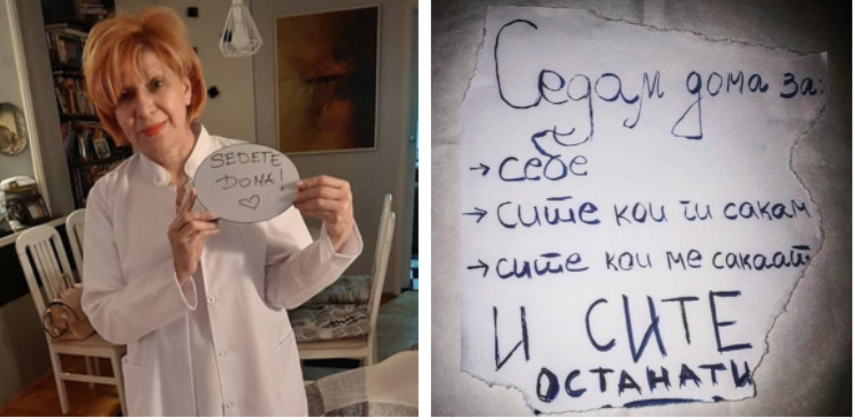 SEDETE
DOMA!
Седам дома за:
→ себе
→ сите кои ги сакам
→ сите кои ме сакаат
И СИТЕ
ОСТАНАТИ